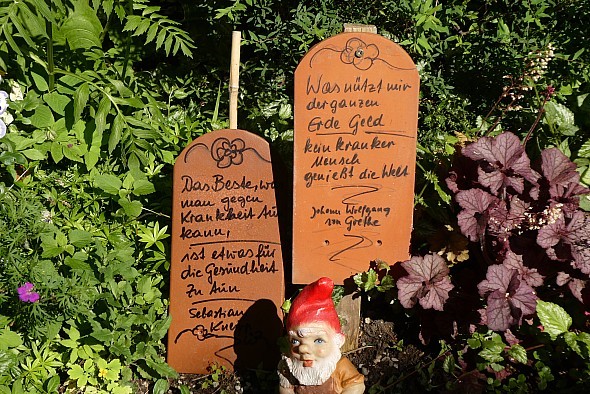 Das Beste, was
man gegen
Krankheit tun
kann,
ist etwas für
die Gesundheit
zu tun
Sebastian
Was nützt mir
der ganzen
Erde Geld
kein kranker
Mensch
genießt die Welt
Johann Wolfgang
von Goethe